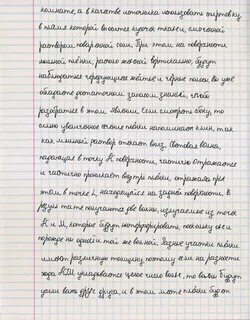 комнате, а в качестве источника использовать спиртовку
в пламя которой внесите кусочек ткани, смоченной
раствором поваренной соли. При этом на поверхности
мыльной плёнки, расположенной вертикально, будут
наблюдаться чередующиеся жёлтые и чёрные полосы. Вы уже
обладаете достаточным запасом знаний, чтобы
разобраться в этом явлении. Если смотреть сбоку, то
сильно увеличенное сечение плёнки напоминает клин, так
как мыльный раствор стекает вниз. Световая волна,
падающая в точку К поверхности, частично отражается
и частично проникает внутрь плёнки, отражаясь при
этом в точке L, находящейся на задней поверхности. В
результате получаются две волны, излучаемые из точек
К и М, которые будут интерферировать, поскольку они
порождены одной и той же волной. Разные участки плёнки
имеют различную толщину, поэтому если на разности
хода укладывается целое число волн, то волны будут
усиливать друг друга, и в этом месте плёнки будет